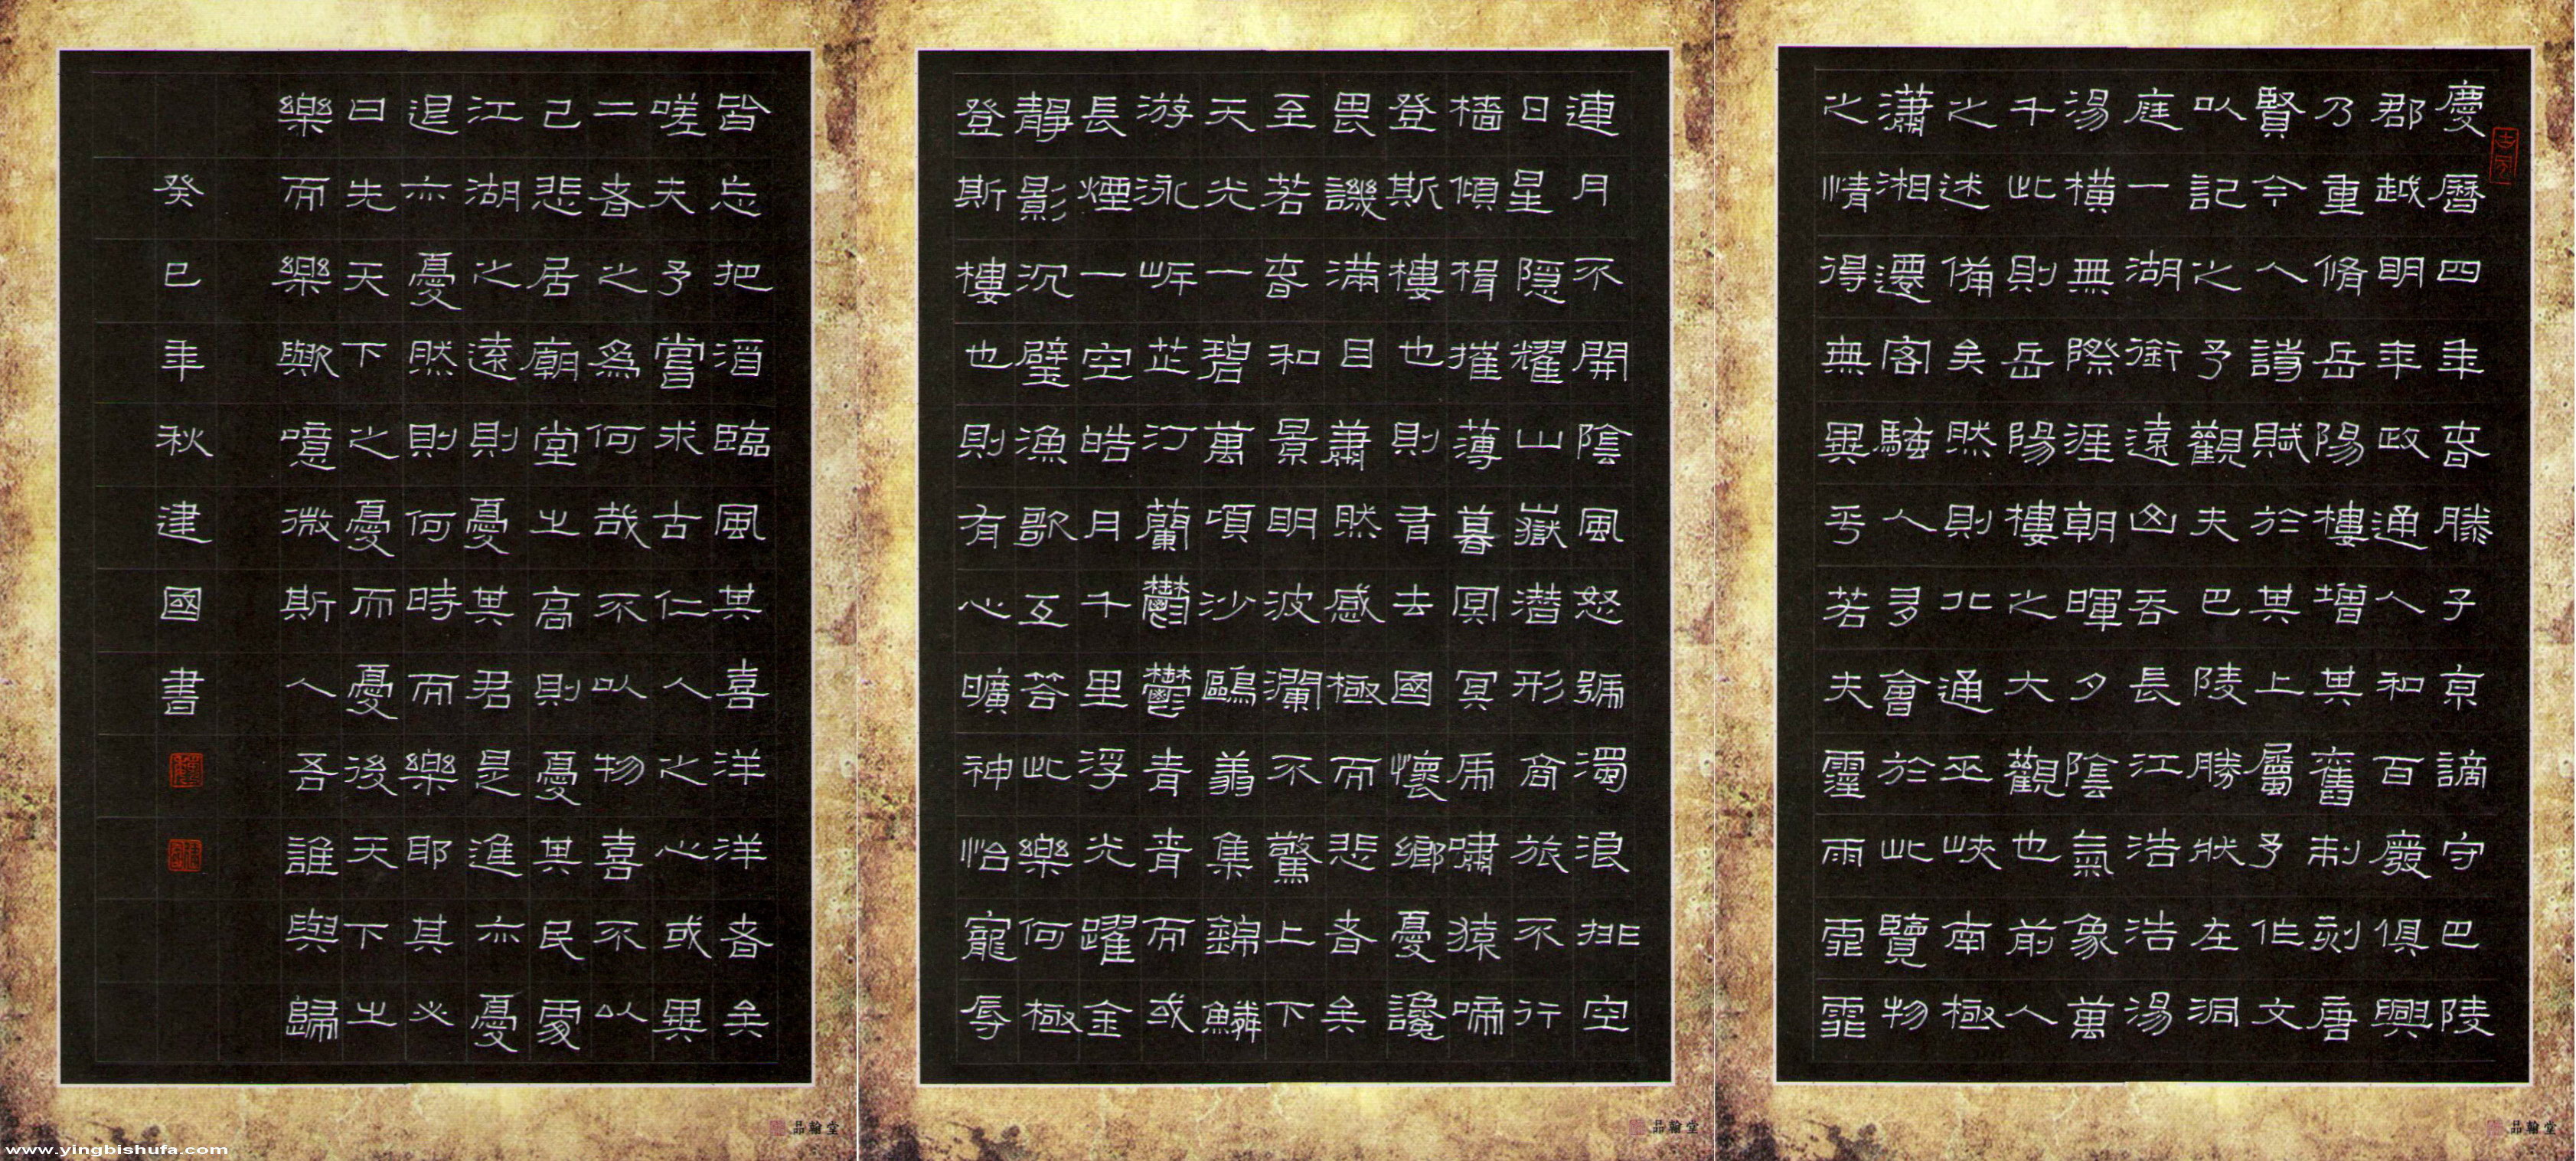 慶曆四年春滕子京謫守巴陵
郡越明年政通人和百廢俱興
乃重脩岳陽樓增其舊制刻唐
賢今人詩賦於其上屬予作文
以記之予觀夫巴陵勝狀在洞
庭一湖銜遠山吞長江浩浩湯
湯橫無際涯朝暉夕陰氣象萬
千此則岳陽樓之大觀也前人
之述備矣然則北通巫峽南極
瀟湘遷客騷人多會於此覽物
之情得無異乎若夫霪雨霏霏
連月不開陰風怒號濁浪排空
日星隱耀山嶽潛形商旅不行
檣傾楫摧薄暮冥冥虎嘯猿啼
登斯樓也則有去國懷鄉憂讒
畏譏滿目蕭然感極而悲者矣
至若春和景明波瀾不驚上下
天光一碧萬頃沙鷗翔集錦鱗
游泳岸芷汀蘭鬱鬱青青而或
長煙一空皓月千里浮光躍金
靜影沉璧漁歌互答此樂何極
登斯樓也則有心曠神怡寵辱
皆忘把酒臨風其喜洋洋者矣
嗟夫予嘗求古仁人之心或異
二者之為何哉不以物喜不以
己悲居廟堂之高則憂其民處
江湖之遠則憂其君是進亦憂
退亦憂然則何時而樂耶其必
曰先天下之憂而憂後天下之
樂而樂歟噫微斯人吾誰與歸
癸巳年秋建國書
品翰堂
品翰堂
品翰堂
www.yingbishufa.com